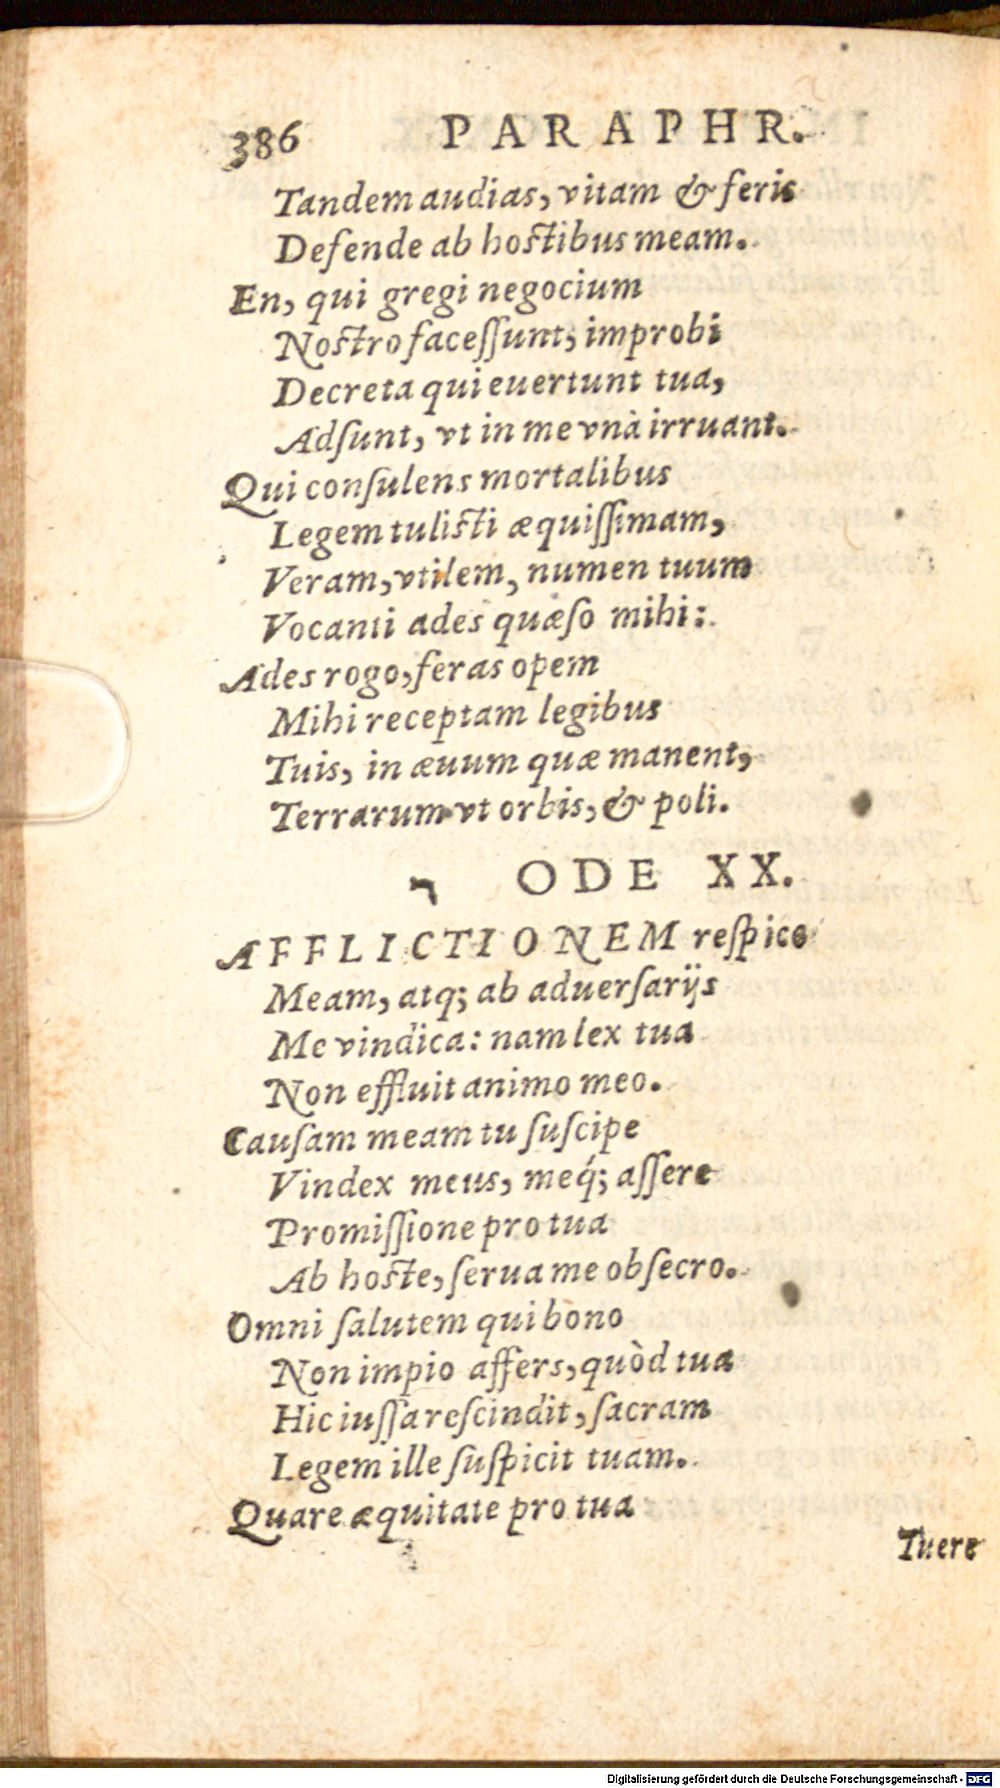 386 PARAPHR.
Tandem audias, vitam & feris
Defende ab hostibus meam.
En, qui gregi negocium
Nostro faceſſunt, improbi
Decreta qui euertunt tua,
Adſunt, vt in me vnà irruant.
Qui conſulens mortalibus
Legem tulisti æquiſſimam,
Veram, vtilem, numen tuum
Vocanti ades quæſo mihi:
Ades rogo, feras opem
Mihi receptam legibus
Tuis, in æuum quæ manent,
Terrarum vt orbis, & poli.
ר ODE XX.
AFFLICTIONEM reſpice
Meam, atq; ab aduerſarijs
Me vindica: nam lex tua
Non effluit animo meo.
Cauſam meam tu ſuſcipe
Vindex meus, meq́; aſſere
Promiſſione pro tua
Ab hoste, ſerua me obſecro.
Omni ſalutem qui bono
Non impio affers, quòd tua
Hic iuſſa reſcindit, ſacram
Legem ille ſuſpicit tuam.
Quare æquitate pro tua
Tuere
Digitalisierung gefördert durch die Deutsche Forschungsgemeinschaft - DFG